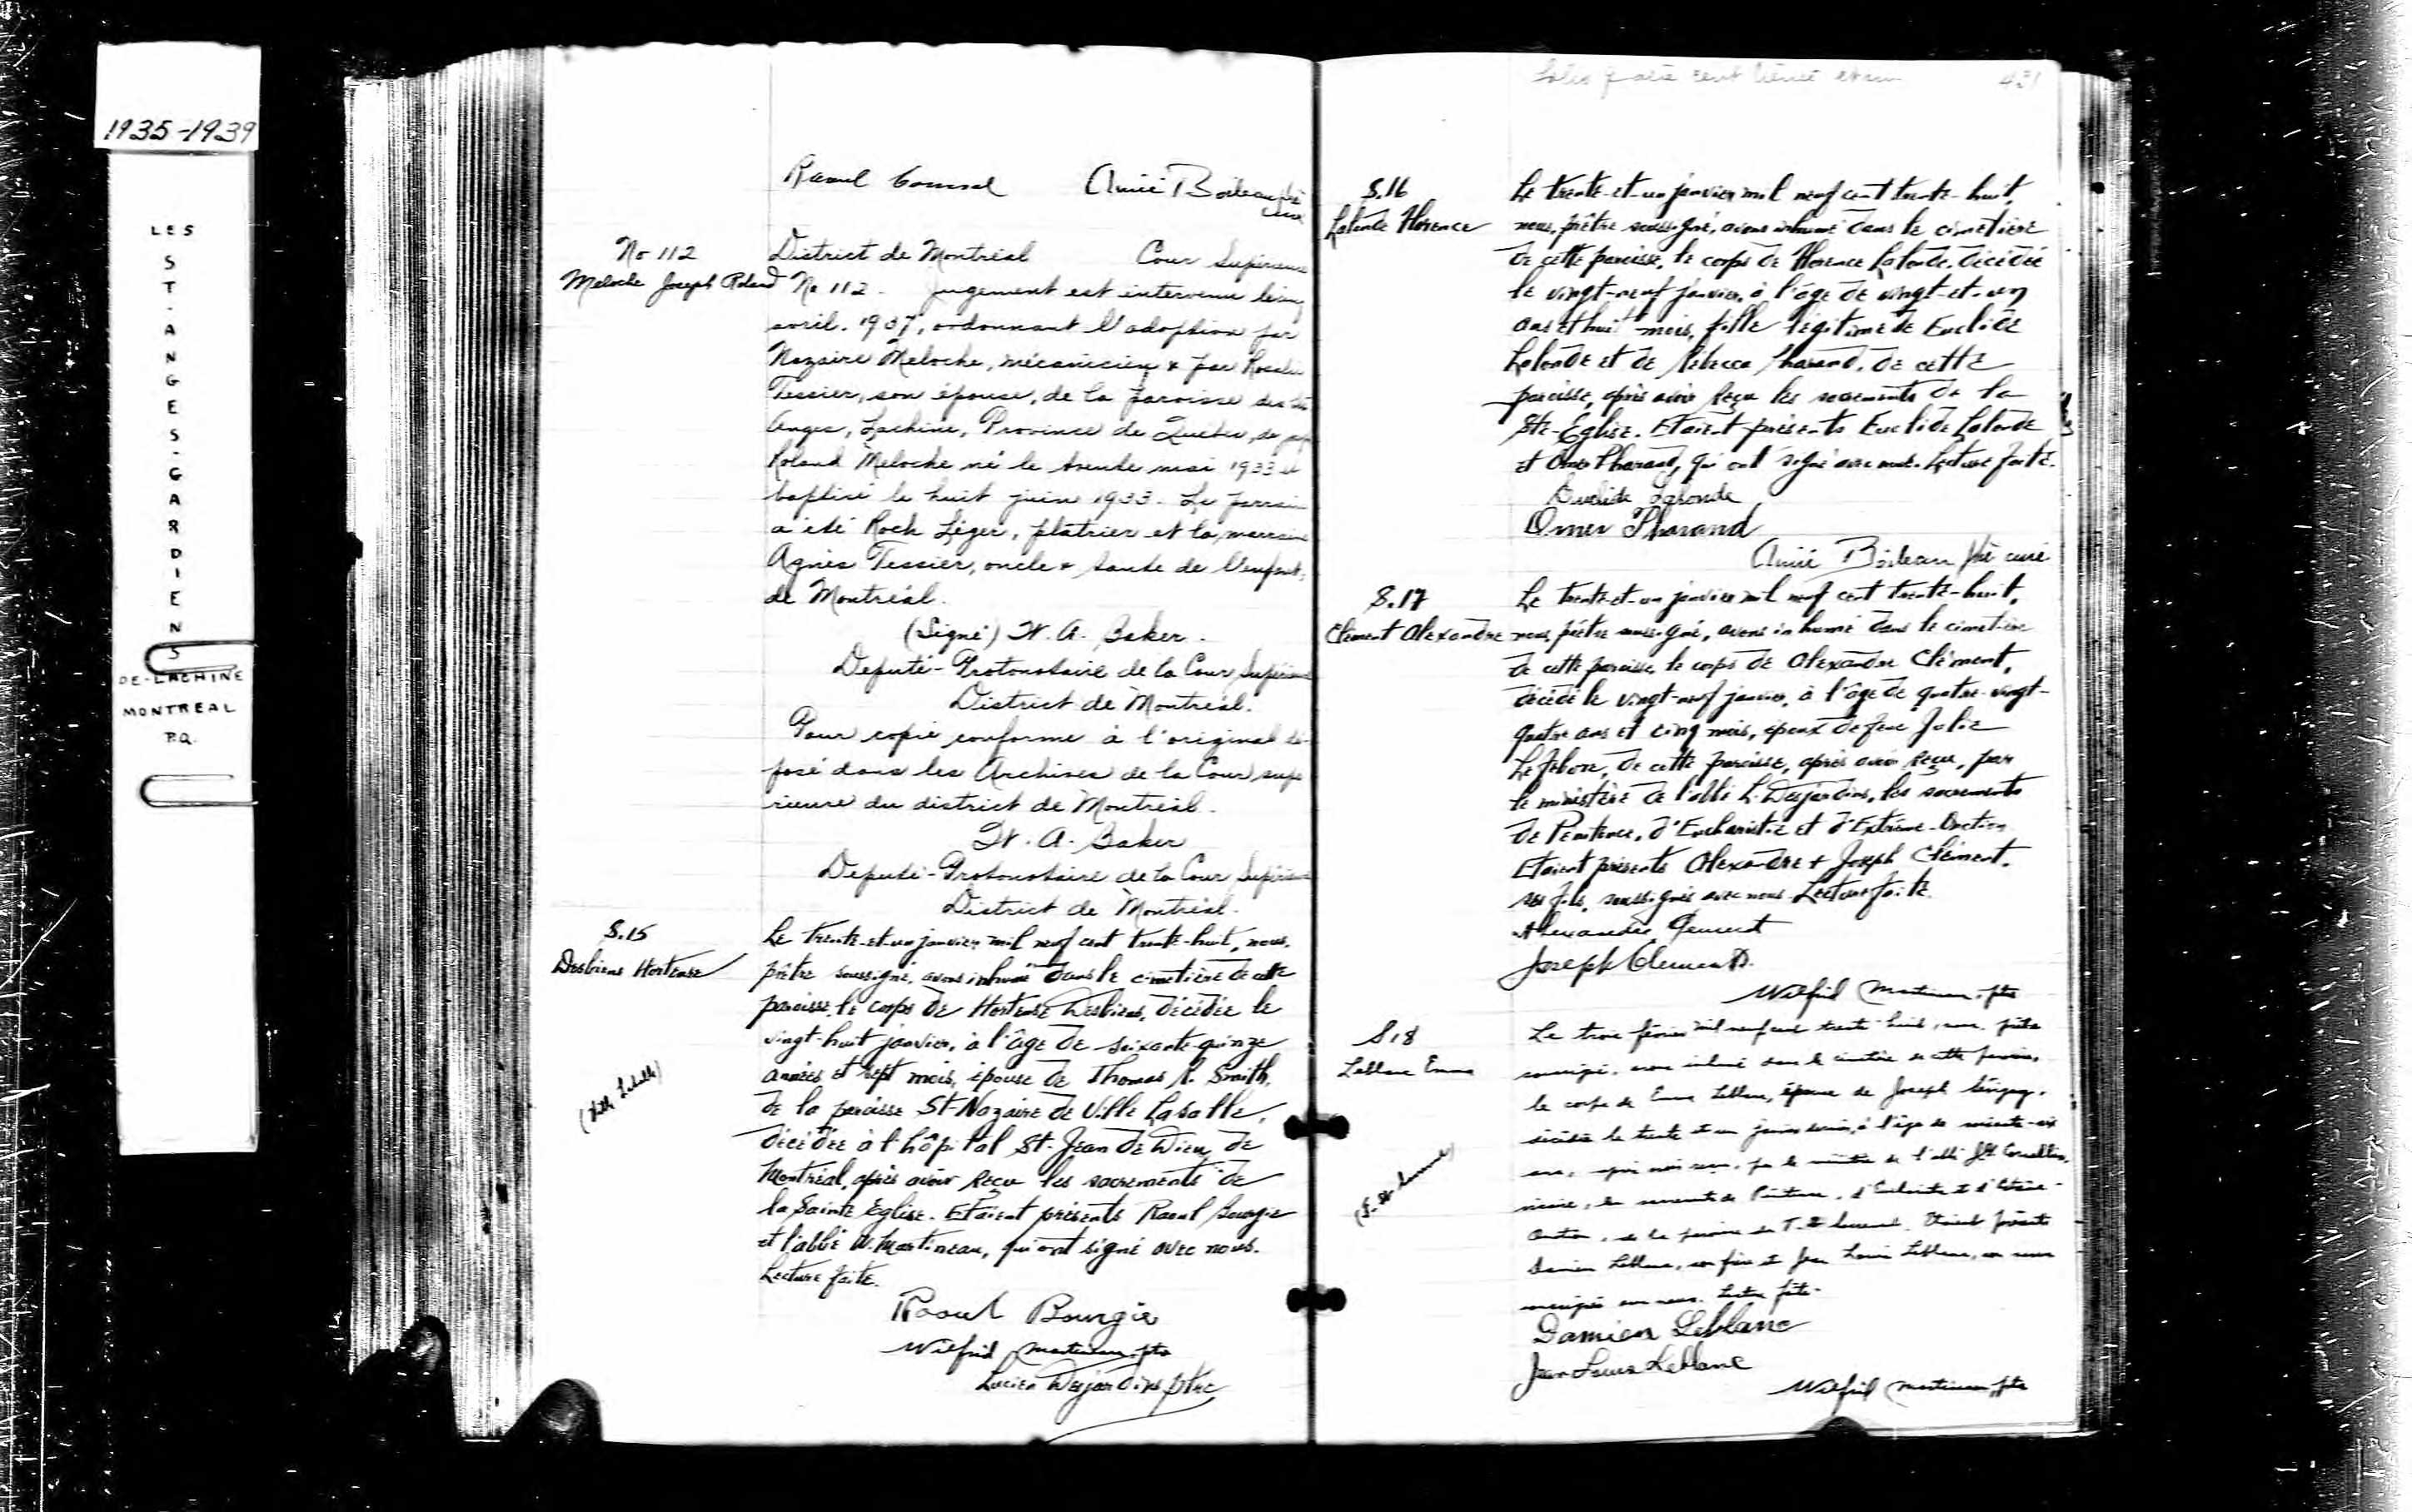 1935-1939
LES
ST-ANGES-GARDIENS
DE-LACHINE
MONTREAL
P.Q.
Raoul Aimé Boileau
No 112 District de Montréal Cour Supérieure
Meloche Joseph Roland No 112 - Jugement est intervenu le
avril 1937, ordonnant l'adoption par
Nazaire Meloche, mécanicien & par
Tessier, son épouse, de la paroisse des
Anges, Lachine, Province de Québec, de
Roland Meloche né le trente mai 1933 et
baptisé le huit juin 1933. Le parrain
a été Roch Léger, plâtrier et la marraine
Agnès Tessier, oncle & tante de l'enfant,
de Montréal.
(Signé) W. A. Baker.
Député-Protonotaire de la Cour Supérieure
District de Montréal.
Pour copie conforme à l'original dé-
posé dans les Archives de la Cour supé
rieure du district de Montréal.
W. A. Baker
Député-Protonotaire de la Cour Supérieure
District de Montréal.
S.15 Le trente-et-un janvier mil neuf cent trente-huit, nous,
Desbiens Hortense prêtre soussigné, avons inhumé dans le cimetière de cette
paroisse, le corps de Hortense Desbiens, décédée le
vingt-huit janvier, à l'âge de soixante-quinze
années et sept mois, épouse de Thomas Smith,
de la paroisse St-Nazaire de Ville Lasalle,
décédée à l'hôpital St-Jean de Dieu, de
Montréal, après avoir reçu les sacrements de
la Sainte Eglise. Etaient présents Raoul Bourgie
et l'abbé W. Martineau, qui ont signé avec nous.
Lecture faite.
Raoul Bourgie
Wilfrid Martineau, ptre
Lucien Desjardins ptre
431
S.16 Le trente-et-un janvier mil neuf cent trente-huit,
Lalonde Florence nous, prêtre soussigné, avons inhumé dans le cimetière
de cette paroisse, le corps de Florence Lalonde, décédée
le vingt-neuf janvier, à l'âge de vingt-et-un
ans et huit mois, fille légitime de Euclide
Lalonde et de Rébecca Pharand, de cette
paroisse, après avoir reçu les sacrements de la
Ste-Eglise. Etaient présents Euclide Lalonde
et Omer Pharand, qui ont signé avec nous. Lecture faite.
Euclide Lalonde
Omer Pharand
Aimé Boileau ptre curé
S.17 Le trente-et-un janvier mil neuf cent trente-huit,
Clément Alexandre nous, prêtre soussigné, avons inhumé dans le cimetière
de cette paroisse, le corps de Alexandre Clément,
décédé le vingt-neuf janvier, à l'âge de quatre-vingt-
quatre ans et cinq mois, époux de feue Julie
Lefebvre, de cette paroisse, après avoir reçu, par
le ministère de l'abbé L. Desjardins, les sacrements
de Pénitence, d'Eucharistie et d'Extrême-Onction.
Etaient présents Alexandre & Joseph Clément,
ses fils, soussignés avec nous. Lecture faite.
Alexandre Clement
Joseph Clement
Wilfrid Martineau, ptre
S.18 Le trois février mil neuf cent trente-huit, nous, prêtre
Leblanc Emma soussigné, avons inhumé dans le cimetière de cette paroisse,
le corps de Emma Leblanc, épouse de Joseph
décédée le trente et un janvier dernier, à l'âge de soixante-six
ans, après avoir reçu, par le ministère de l'abbé
vicaire, les sacrements de Pénitence, d'Eucharistie et d'Extrême-
Onction, de la paroisse du T. S. Sacrement. Etaient présents
Damien Leblanc, son frère et Jean Louis Leblanc, son neveu
soussignés avec nous. Lecture faite.
Damien Leblanc
Jean Louis Leblanc
Wilfrid Martineau, ptre